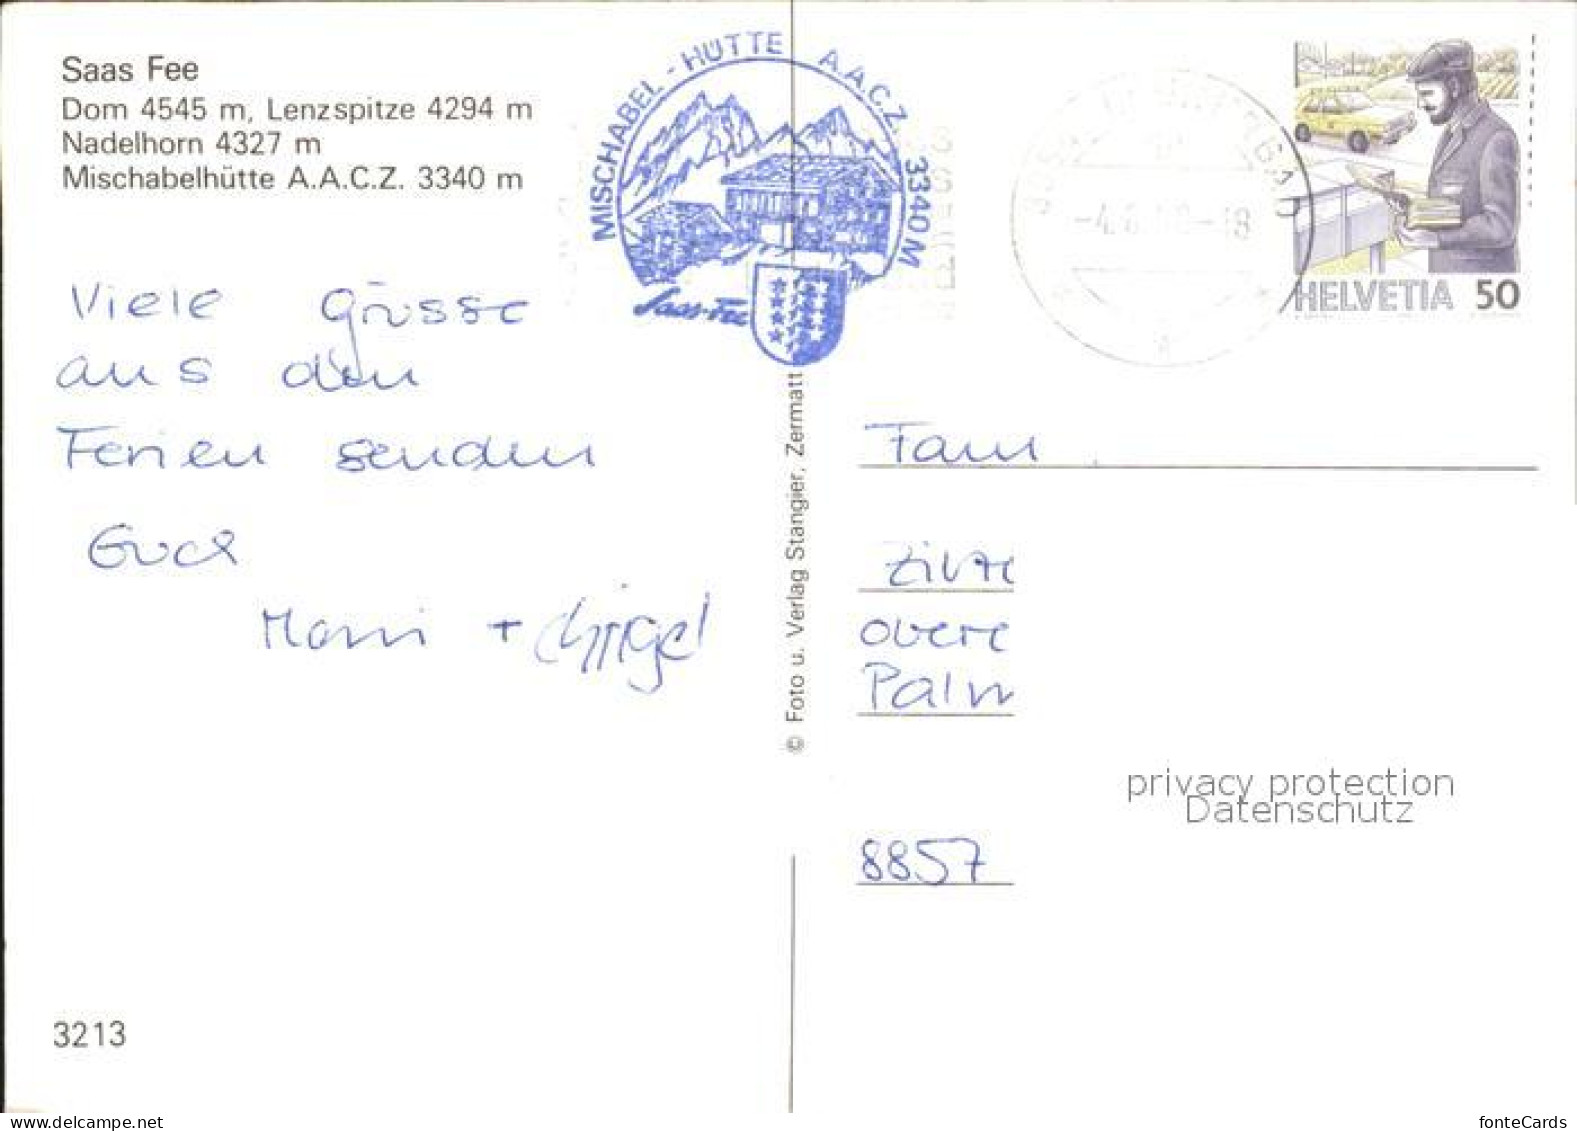 Saas Fee
Dom 4545 m, Lenzspitze 4294 m
Nadelhorn 4327 m
Mischabelhütte A.A.C.Z. 3340 m
MISCHABEL - HÜTTE A.A.C.Z. 3340 M
Saas-Fee
HELVETIA 50
Viele Grüsse
aus den
Ferien senden
Euch
+
© Foto u. Verlag Stangier, Zermatt
Fam
obere
8857
privacy protection
Datenschutz
3213
www.delcampe.net
fonteCards